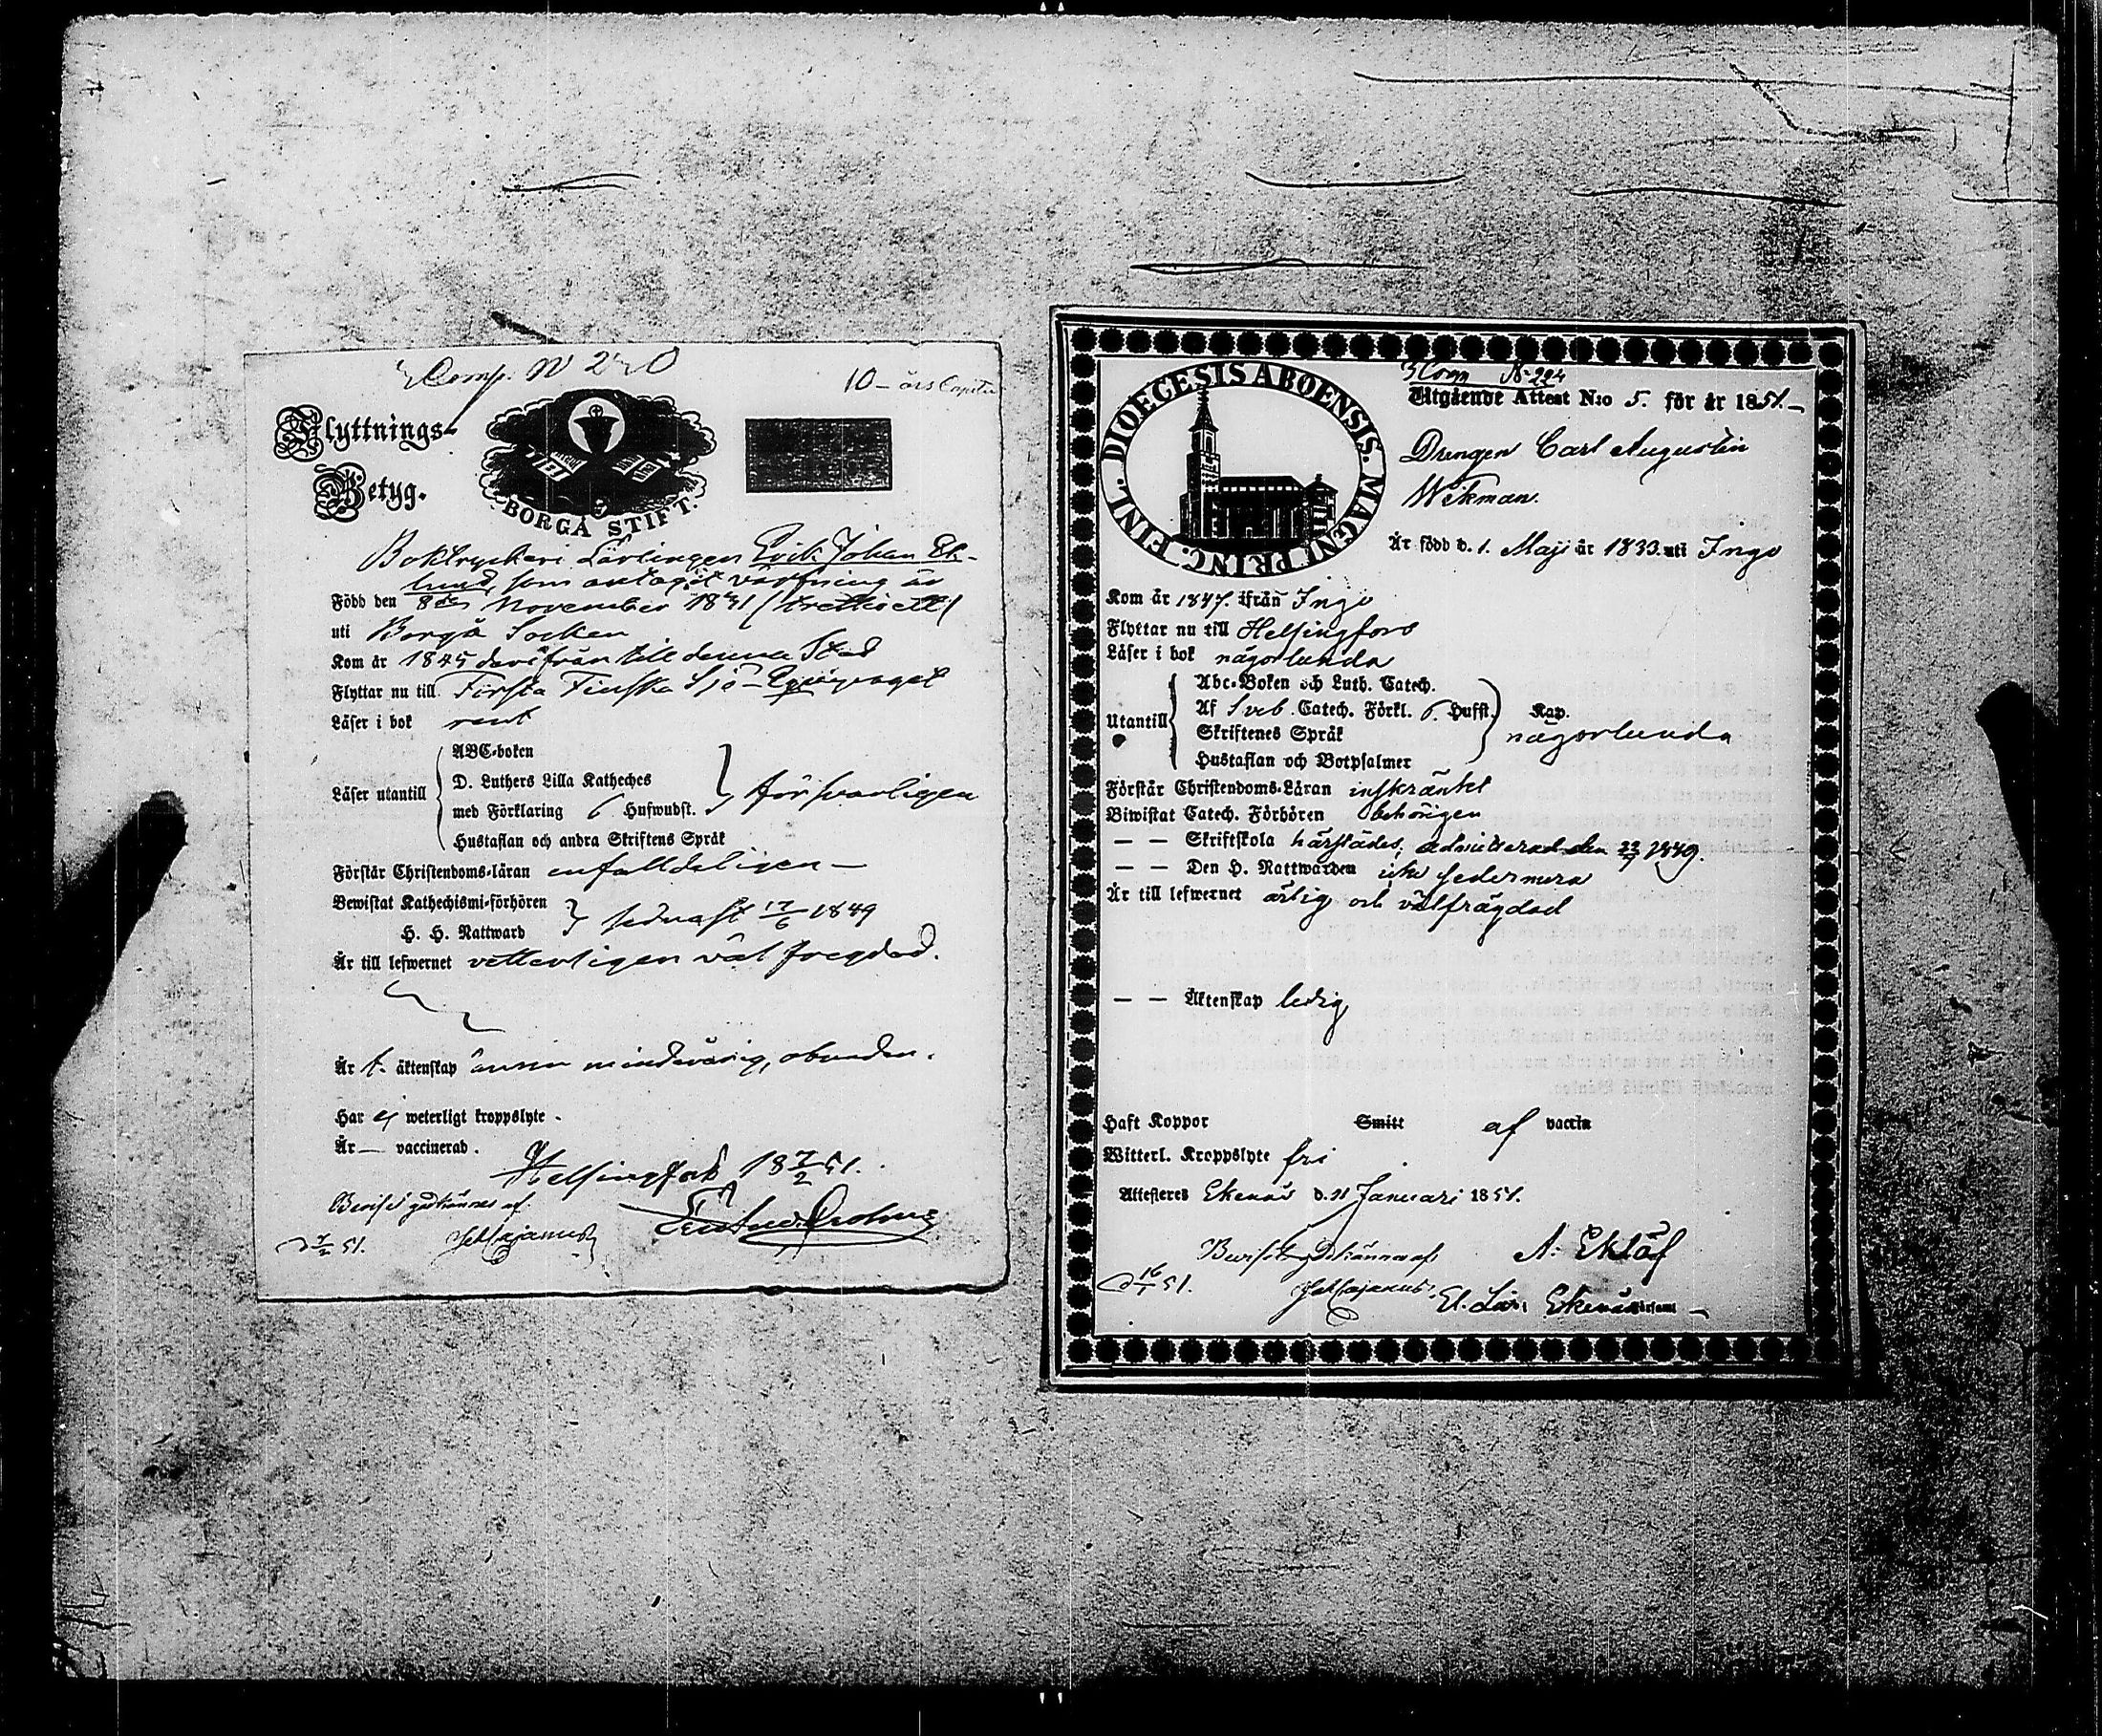 Comp. N 240
10 – års Capitu
Flyttnings-
Betyg.
BORGÅ STIFT.
Boktryckeri Lärlingen Erik Johan Ek-
lund, som antagit värfning är
Född den 8de November 1831 (trettioett)
uti Borgå Socken
Kom år 1845 derifrån till denna Stad
Flyttar nu till Första Finska Sjö-Equipaget
Läser i bok rent
Läser utantill
ABC-boken
D. Luthers Lilla Katheches
med Förklaring 6 Hufwudst.
Hustaflan och andra Skriftens Språk
försvarligen
Förstår Christendoms-läran enfalldeligen –
Bewistat Kathechismi-förhören
H. H. Nattward
sednast 17/6 1849
Är till lefwernet vetterligen väl fregdad.
Är t. äktenskap ännu minderårig, obunden.
Har ej weterligt kroppslyte.
Är — vaccinerad.
Helsingfors 18 7/2 51.
Beviset godkännes af
d 7/2 51.
DIOECESIS ABOENSIS. MAGNI PRINC. FINL.
3 Comp N 224
Utgående Attest N:o 5. för år 1851. –
Drengen Carl Augustin
Wikman.
Är född d. 1. Maji år 1833 uti Ingo
Kom år 1847. ifrån Ingo
Flyttar nu till Helsingfors
Läser i bok någorlunda
Utantill
Abc-Boken och Luth. Catech.
Af Sveb. Catech. Förkl. 6. Hufst. Kap.
Skriftenes Språk
Hustaflan och Botpsalmer
någorlunda
Förstår Christendoms-Läran inskränkt
Biwistat Catech. Förhören behörigen
— — Skriftskola härstädes, admitterad den 22/7 1849.
— — Den H. Nattwarden icke sedermera
Är till lefwernet ärlig och välfrägdad
— — Äktenskap ledig
Haft Koppor Smitt af vaccin
Witterl. Kroppslyte fri
Attesteres Ekenäs d. 11 Januari 1851.
Beviset godkännes af
A. Eklöf
d 16/1 51.
Ekenäs